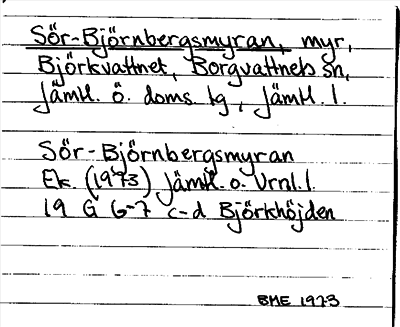 Sör-Björnbergsmyran, myr,
Björkvattnet, Borgvattnets sn,
Jämtl. ö. doms. tg, Jämtl. l.
Sör-Björnbergsmyran
Ek. (1973) Jämtl. o. Vrnl. l.
19 G 6-7 c-d Björkhöjden
BME 1973